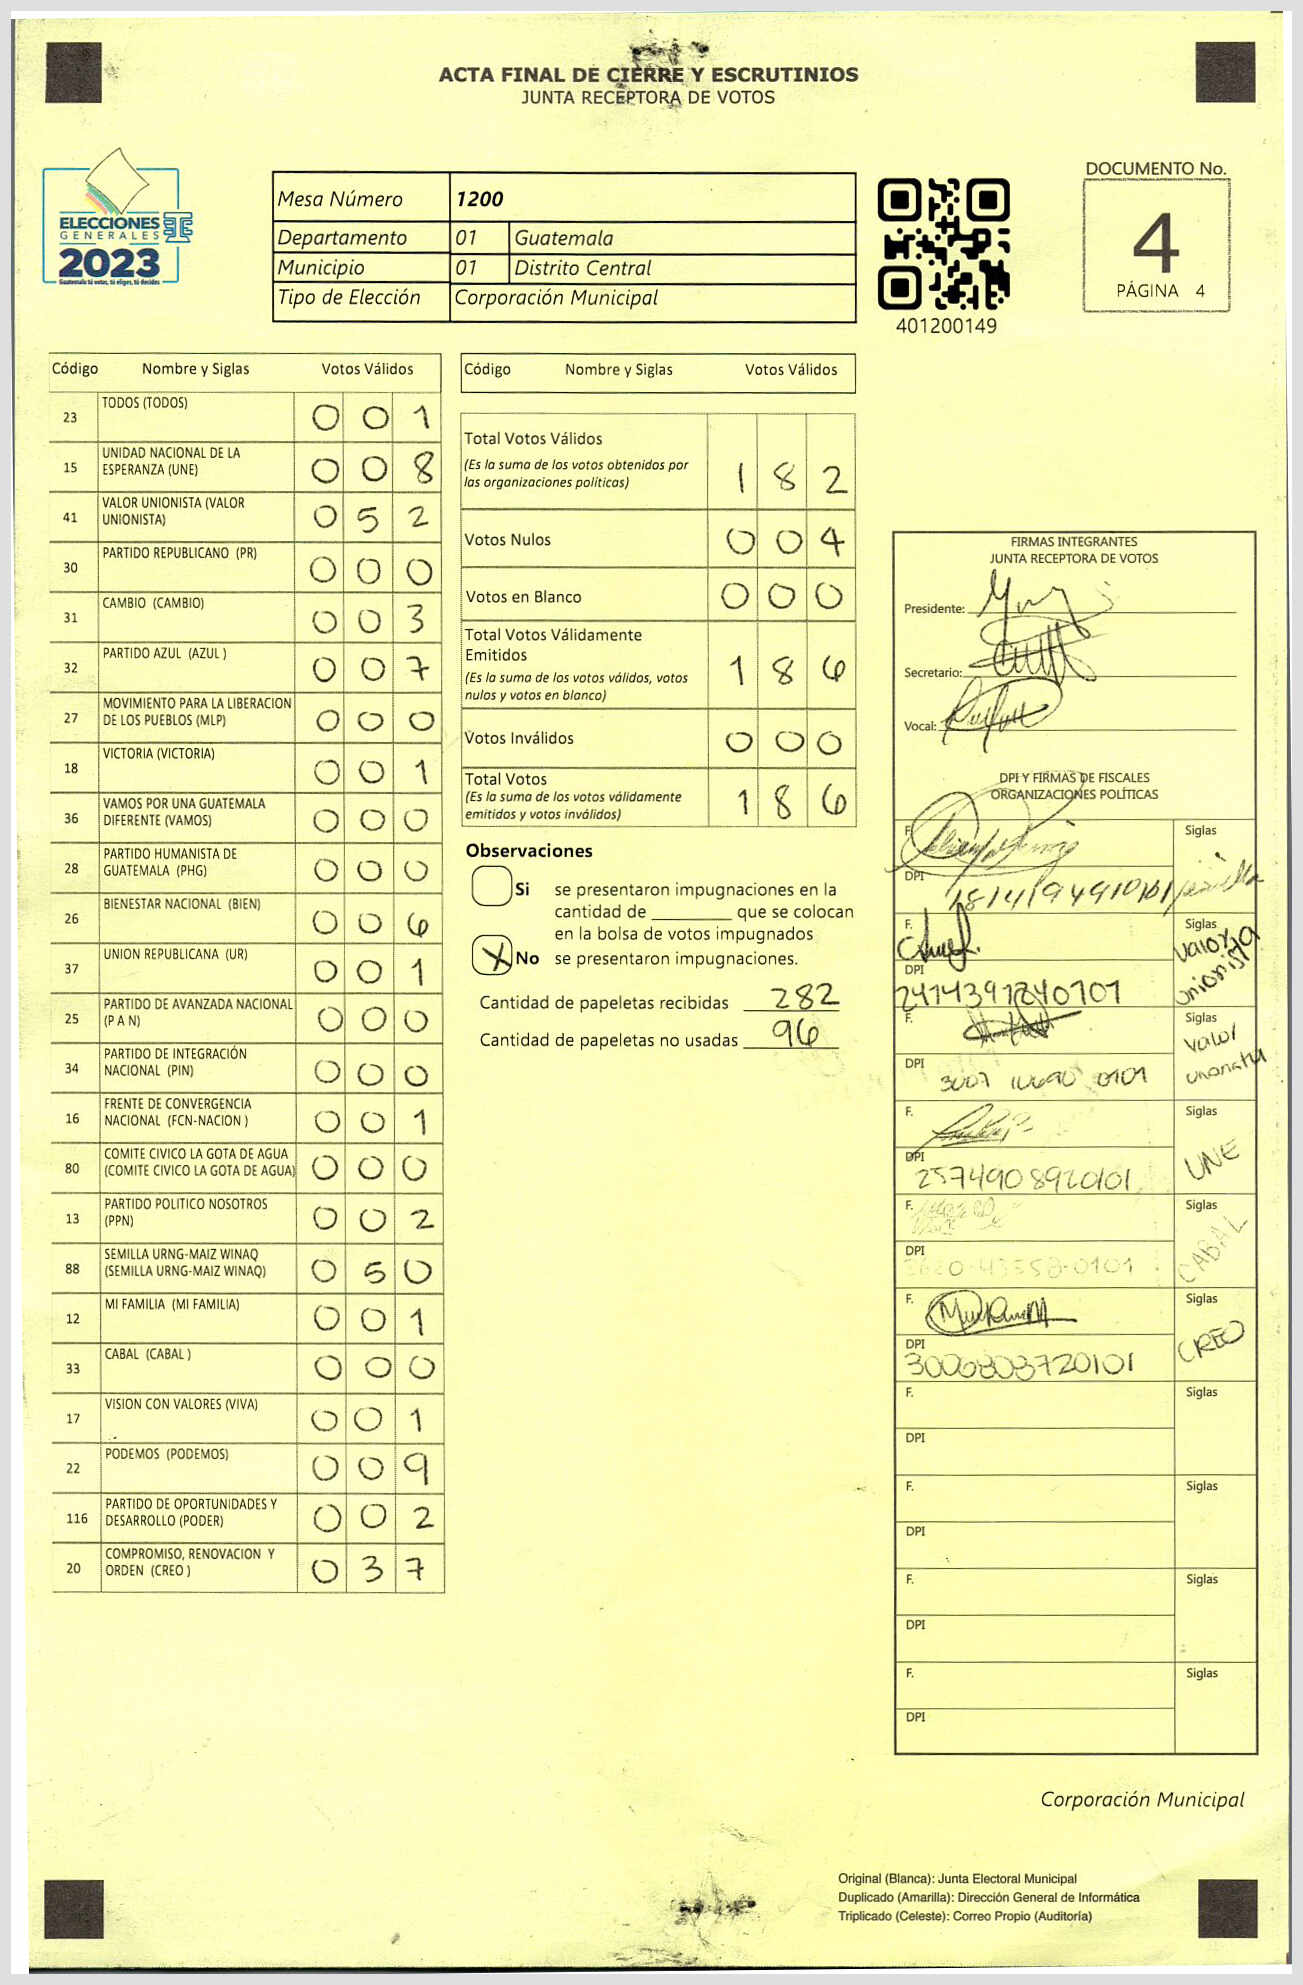 ACTA FINAL DE CIERRE Y ESCRUTINIOS
JUNTA RECEPTORA DE VOTOS
ELECCIONES
GENERALES
2023
Guatemala tú votas, tú eliges, tú decides
Mesa Número 1200
Departamento 01 Guatemala
Municipio 01 Distrito Central
Tipo de Elección Corporación Municipal
401200149
DOCUMENTO No.
4
PÁGINA 4
Código Nombre y Siglas Votos Válidos
23 TODOS (TODOS) 0 0 1
15 UNIDAD NACIONAL DE LA
ESPERANZA (UNE) 0 0 8
41 VALOR UNIONISTA (VALOR
UNIONISTA) 0 5 2
30 PARTIDO REPUBLICANO (PR) 0 0 0
31 CAMBIO (CAMBIO) 0 0 3
32 PARTIDO AZUL (AZUL ) 0 0 7
27 MOVIMIENTO PARA LA LIBERACION
DE LOS PUEBLOS (MLP) 0 0 0
18 VICTORIA (VICTORIA) 0 0 1
36 VAMOS POR UNA GUATEMALA
DIFERENTE (VAMOS) 0 0 0
28 PARTIDO HUMANISTA DE
GUATEMALA (PHG) 0 0 0
26 BIENESTAR NACIONAL (BIEN) 0 0 6
37 UNION REPUBLICANA (UR) 0 0 1
25 PARTIDO DE AVANZADA NACIONAL
(P A N) 0 0 0
34 PARTIDO DE INTEGRACIÓN
NACIONAL (PIN) 0 0 0
16 FRENTE DE CONVERGENCIA
NACIONAL (FCN-NACION ) 0 0 1
80 COMITE CIVICO LA GOTA DE AGUA
(COMITE CIVICO LA GOTA DE AGUA) 0 0 0
13 PARTIDO POLITICO NOSOTROS
(PPN) 0 0 2
88 SEMILLA URNG-MAIZ WINAQ
(SEMILLA URNG-MAIZ WINAQ) 0 5 0
12 MI FAMILIA (MI FAMILIA) 0 0 1
33 CABAL (CABAL ) 0 0 0
17 VISION CON VALORES (VIVA) 0 0 1
22 PODEMOS (PODEMOS) 0 0 9
116 PARTIDO DE OPORTUNIDADES Y
DESARROLLO (PODER) 0 0 2
20 COMPROMISO, RENOVACION Y
ORDEN (CREO ) 0 3 7
Código Nombre y Siglas Votos Válidos
Total Votos Válidos
(Es la suma de los votos obtenidos por
las organizaciones políticas) 1 8 2
Votos Nulos 0 0 4
Votos en Blanco 0 0 0
Total Votos Válidamente
Emitidos
(Es la suma de los votos válidos, votos
nulos y votos en blanco) 1 8 6
Votos Inválidos 0 0 0
Total Votos
(Es la suma de los votos válidamente
emitidos y votos inválidos) 1 8 6
Observaciones
Si se presentaron impugnaciones en la
cantidad de ________ que se colocan
en la bolsa de votos impugnados
X No se presentaron impugnaciones.
Cantidad de papeletas recibidas 282
Cantidad de papeletas no usadas 96
FIRMAS INTEGRANTES
JUNTA RECEPTORA DE VOTOS
Presidente:
Secretario:
Vocal:
DPI Y FIRMAS DE FISCALES
ORGANIZACIONES POLÍTICAS
F. Siglas
DPI
F. Siglas Valor
Unionista
DPI 2414391240101
F. Siglas Valor
DPI 0101
F. Siglas UNE
DPI 2574908920101
F. Siglas CABAL
DPI
F. Siglas CREO
DPI 3006808720101
F. Siglas
DPI
F. Siglas
DPI
F. Siglas
DPI
F. Siglas
DPI
Corporación Municipal
Original (Blanca): Junta Electoral Municipal
Duplicado (Amarilla): Dirección General de Informática
Triplicado (Celeste): Correo Propio (Auditoría)